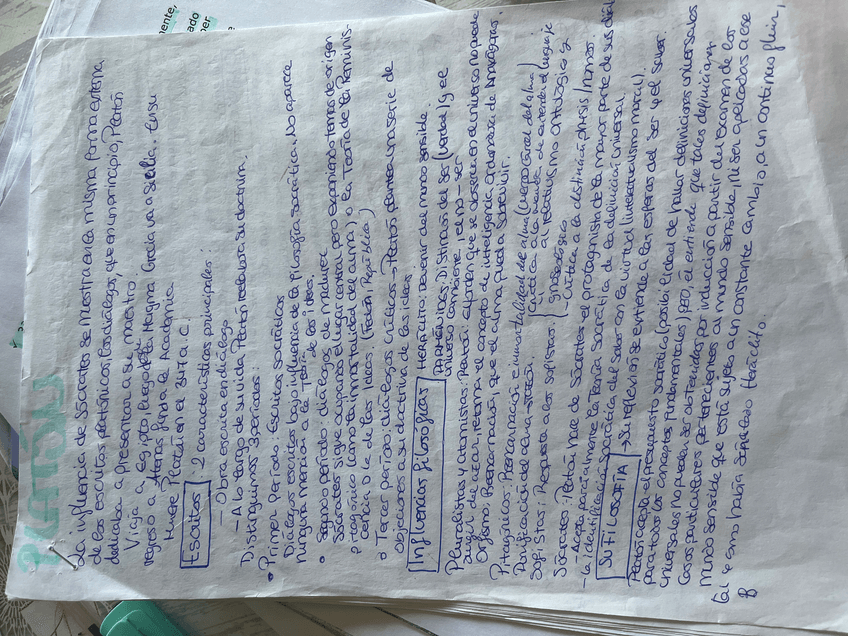 PLATÓN
La influencia de Sócrates se muestra en la misma forma externa
de los escritos platónicos, los diálogos, que en un principio, Platón
dedicaba a presentar a su maestro.
Viaja a Egipto, luego de la Magna Grecia va a Sicilia. En su
regreso a Atenas funda la Academia
Muere Platón en el 347 a.C.
Escritos: 2 características principales:
- Obra escrita en diálogo
- A lo largo de su vida Platón reelabora su doctrina.
Distinguimos 3 períodos:
• Primer período: Escritos socráticos
Diálogos escritos bajo influencia de la filosofía socrática. No aparece
ninguna mención a la Teoría de las ideas.
• Segundo período: diálogos de madurez
Sócrates sigue ocupando el lugar central pero exponiendo temas de origen
pitagórico (como la inmortalidad del alma) o la Teoría de la Reminis-
cencia o le de las Ideas. (Fedón, República)
• Tercer período: diálogos críticos → Platón plantea una serie de
objeciones a su doctrina de las ideas.
Influencias filosóficas
Heráclito: devenir del mundo sensible.
Parménides: Distinción del ser (verdad) y el
universo cambiante, el no-ser
Pluralistas y atomistas: Platón: al orden que se observa en el universo no puede
surgir del azar, retoma el concepto de inteligencia ordenadora de Anaxágoras.
Orfismo: Reencarnación, que el alma pueda sobrevivir.
Pitagóricos: Reencarnación e inmortalidad del alma (cuerpo cárcel del alma)
Purificación del alma
Sofistas: Respuesta a los sofistas:
crítica a la manera de entender el lenguaje
al relativismo ontológico y
gnoseológico
crítica a la distinción physis/nomos.
Sócrates: Platón hace de Sócrates el protagonista de la mayor parte de sus diál
- Acepta parcialmente la Teoría Socrática de la definición universal
- la identificación socrática del saber con la virtud (intelectualismo moral).
SU FILOSOFÍA
Su reflexión se extiende a las esferas del ser y el saber.
Platón acepta el presupuesto socrático (posibilidad de hallar definiciones universales
para todos los conceptos fundamentales) pero, él entiende que tales definiciones
universales no pueden ser obtenidas por inducción a partir del examen de los
casos particulares pertenecientes al mundo sensible, ni ser aplicadas a ese
mundo sensible que está sujeto a un constante cambio, a un continuo fluir,
tal y como había señalado Heráclito.